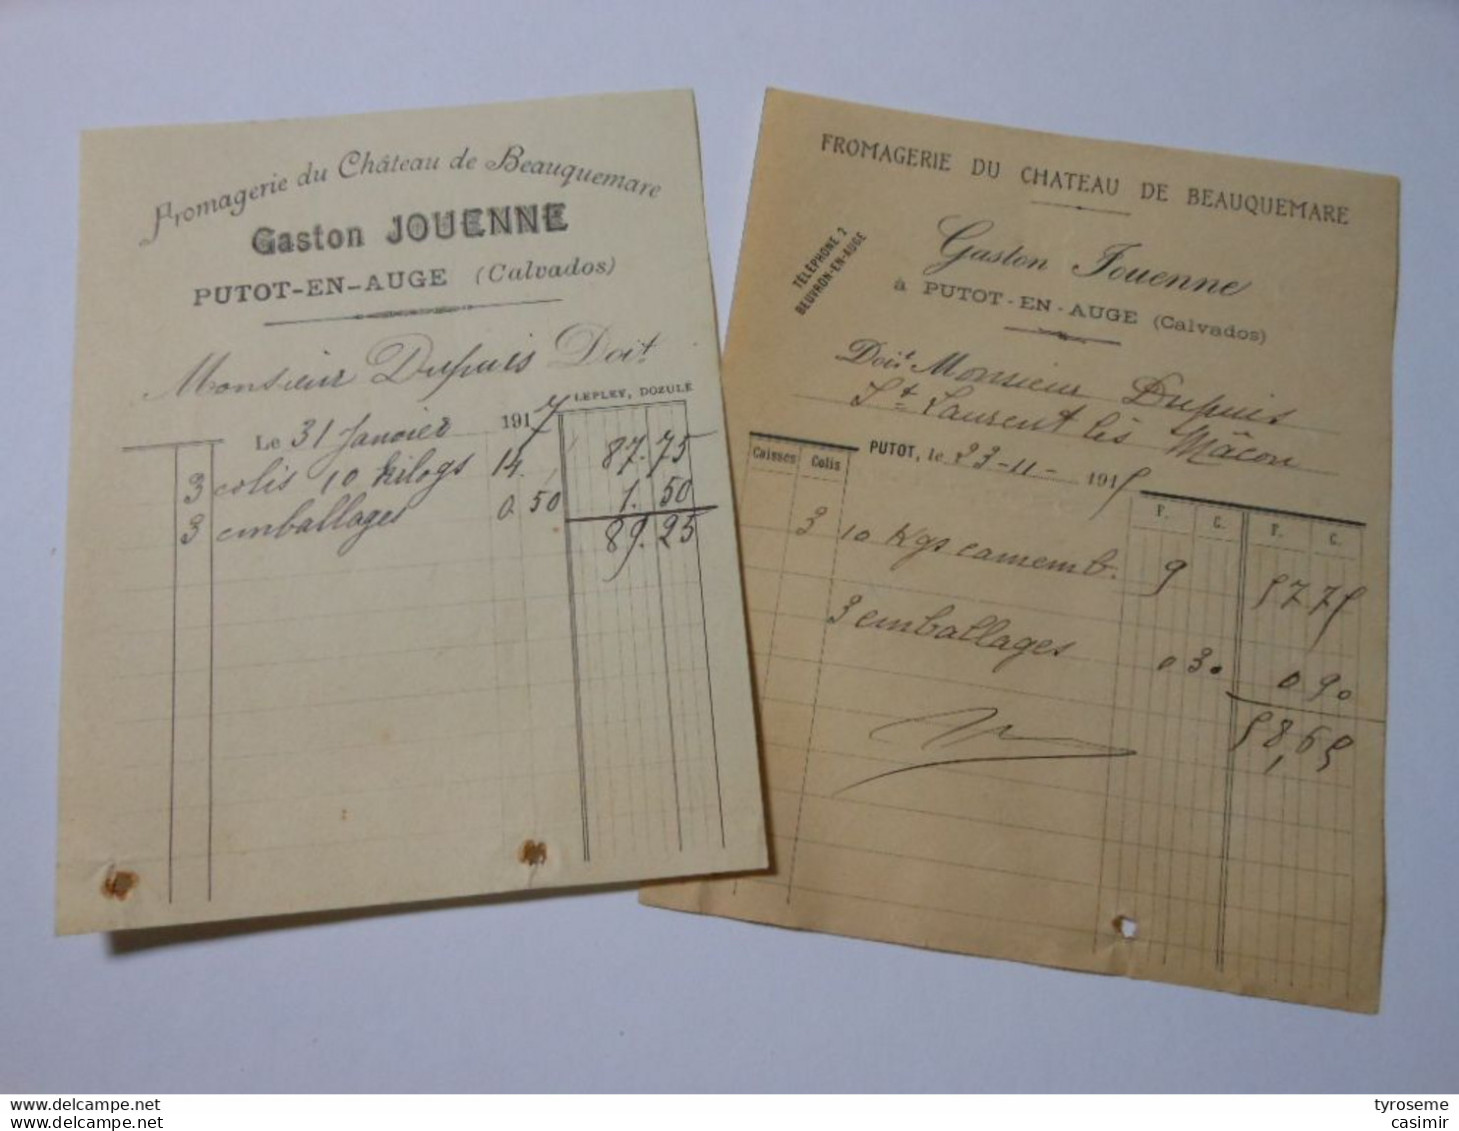 Fromagerie du Château de Beauquemare
Gaston JOUENNE
PUTOT-EN-AUGE (Calvados)
Monsieur Dupuis Doit
LEPLEY, DOZULÉ
Le 31 Janvier 1917
3 colis 10 kilogs 14. 87.75
3 emballages 0.50 1.50
89.25
FROMAGERIE DU CHATEAU DE BEAUQUEMARE
TÉLÉPHONE 2
BEUVRON-EN-AUGE
Gaston Jouenne
à PUTOT-EN-AUGE (Calvados)
Doit Monsieur Dupuis
St Laurent lès Mâcon
PUTOT, le 23-11- 1915
Caisses Colis F. C. F. C.
3 10 Kgs camemb. 9 57 75
3 emballages 0 30 0 90
58,65
www.delcampe.net
www.delcampe.net
tyroseme
casimir